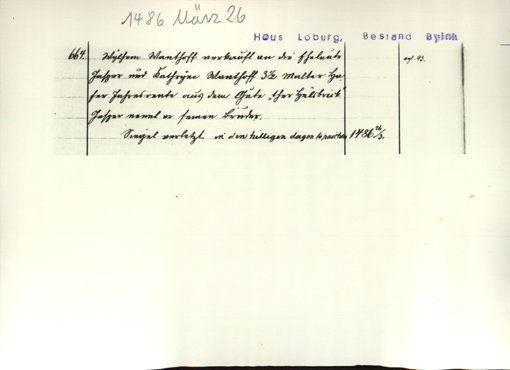 1486 März 26
Haus Loburg, Bestand Byink
664. Wylhem Wanthoff verkauft an die Eheleute
Jasper und Kathryne Wanthoff 3½ Malter Ha-
fer Jahresrente aus dem Gute "ther Hülsbreck"
Jasper nennt er seinen Bruder.
Siegel verletzt in den hilligen dagen to paschen 1486 26/3.